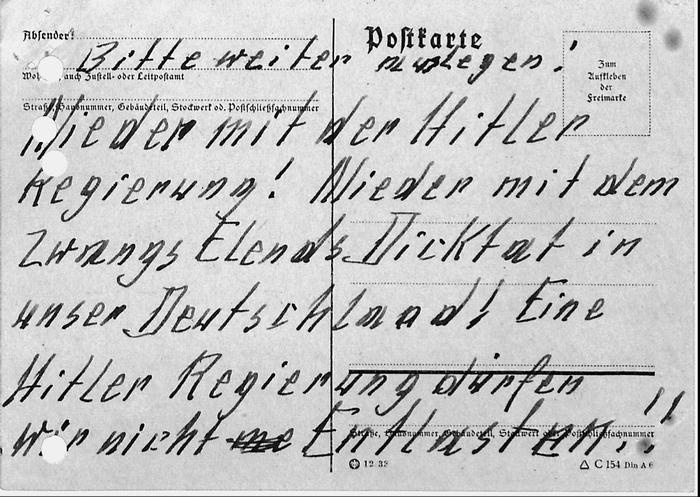 Absender:
Postkarte
Bitte weiter legen!
Wo auch Zustell- oder Leitpostamt
Zum
Aufkleben
der
Freimarke
Straße, Hausnummer, Gebäudeteil, Stockwerk od. Postschließfachnummer
Nieder mit der Hitler
Regierung! Nieder mit dem
Zwangs Elends Dicktat in
unser Deutschlaad! Eine
Hitler Regierung dürfen
wir nicht Entlasten..!!
Straße, Hausnummer, Gebäudeteil, Stockwerk oder Postschließfachnummer
12 38
C 154 Din A 6